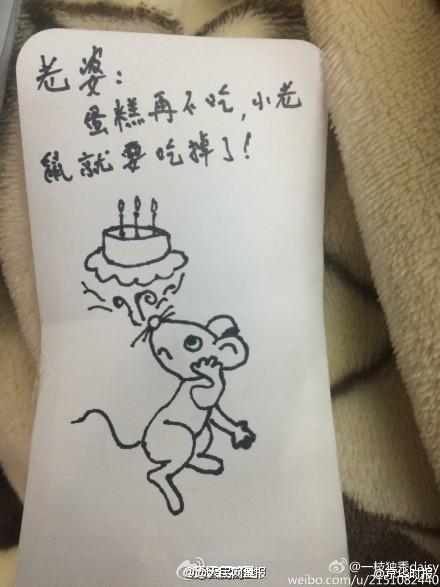 老婆:
蛋糕再不吃,小老
鼠就要吃掉了!
@一枝独秀daisy
weibo.com/u/2151082440